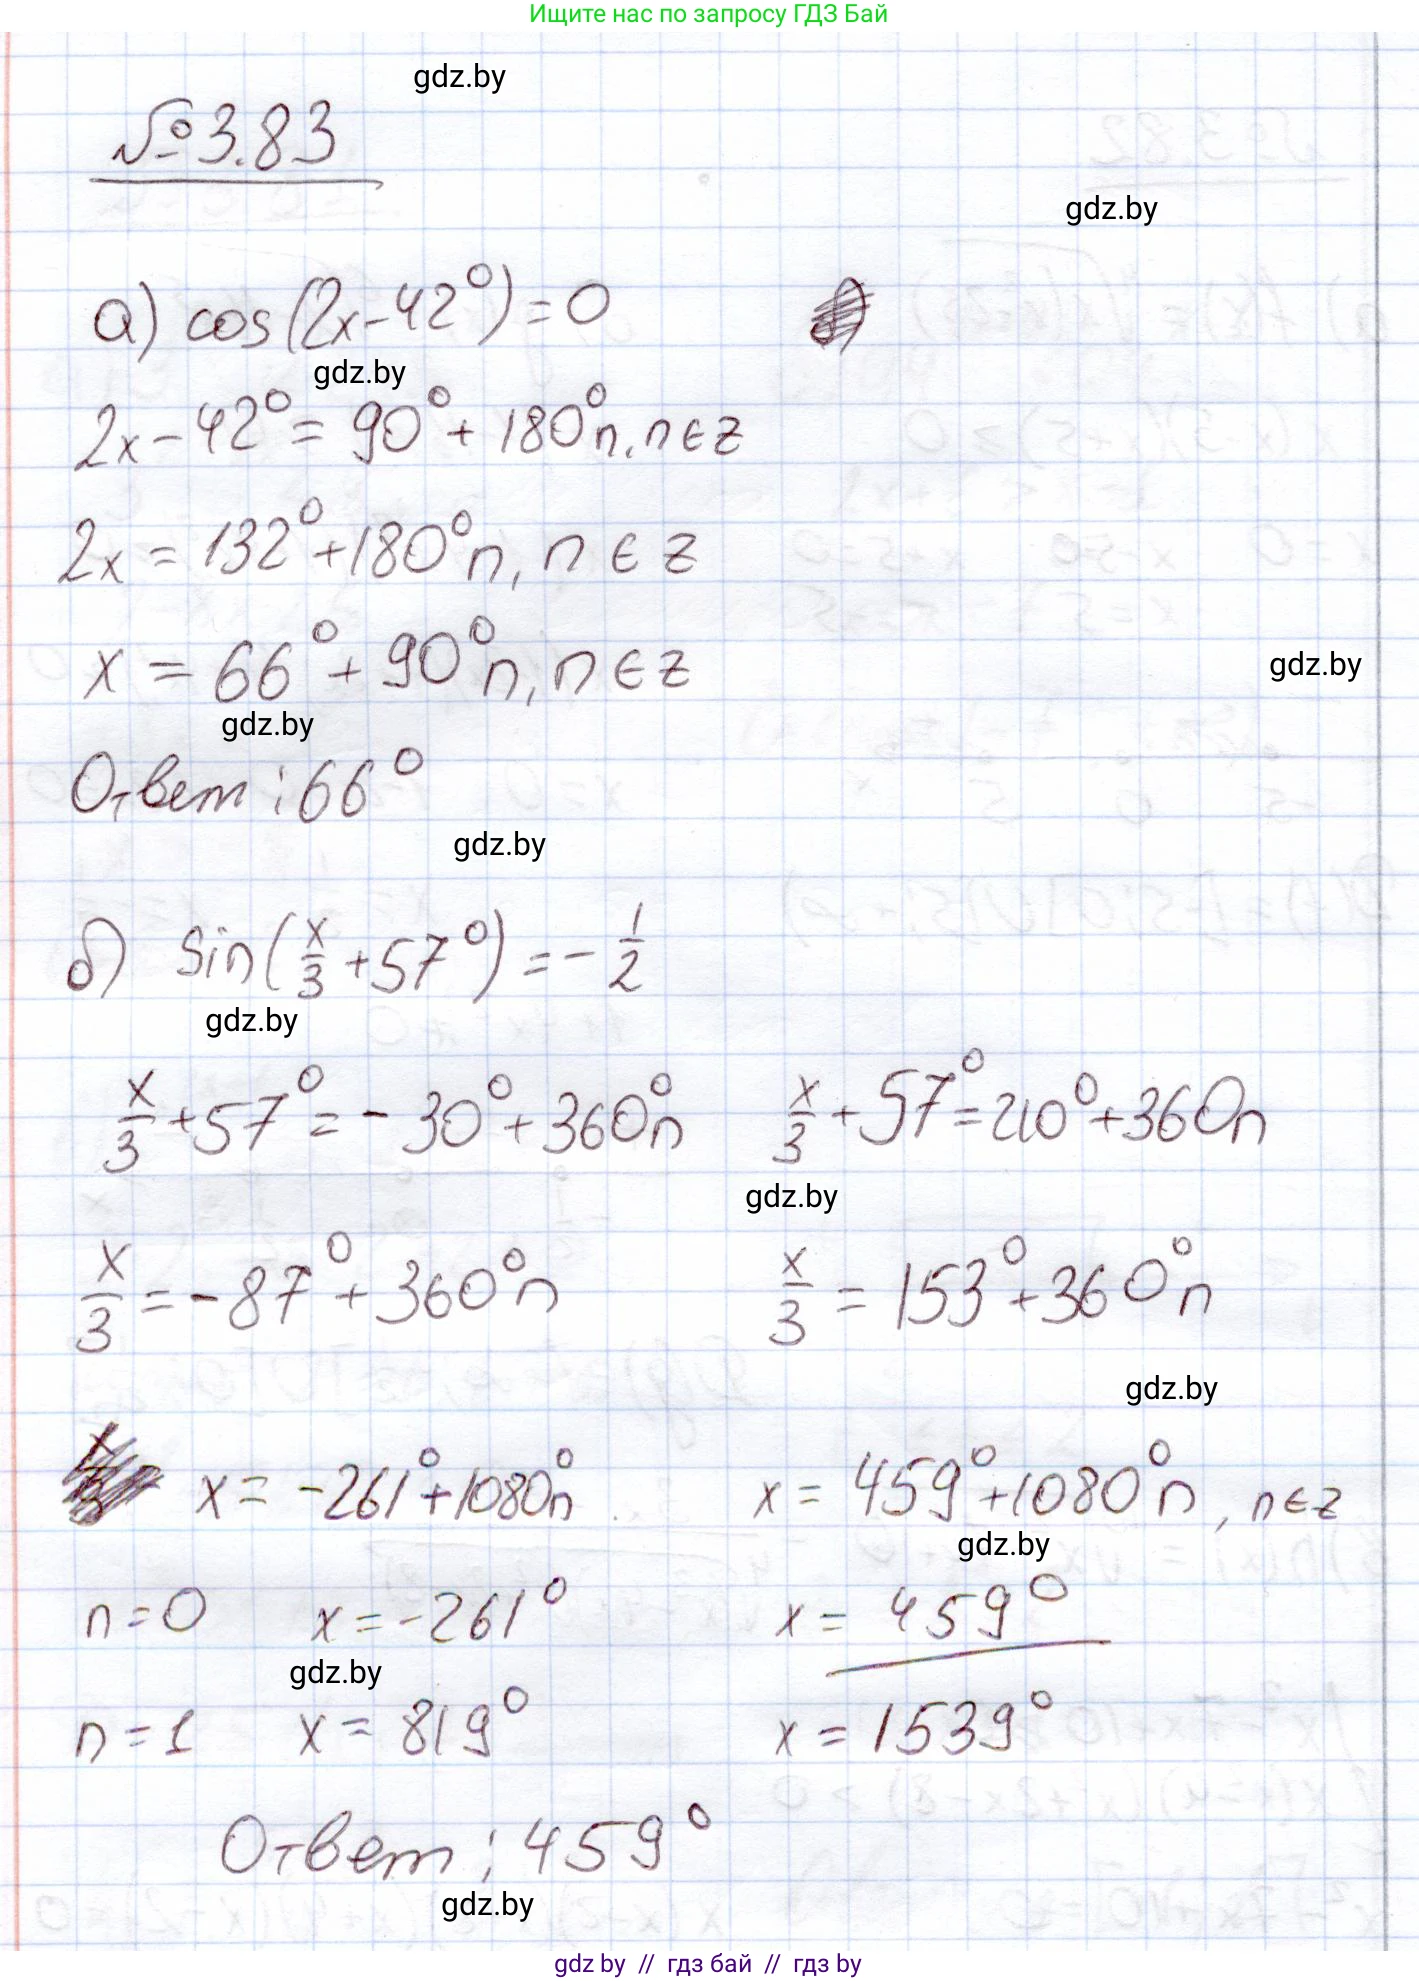 Ищите нас по запросу ГДЗ Бай
gdz.by
№3.83
gdz.by
а) cos(2x-42°)=0
gdz.by
2x-42°=90°+180°n, n∈z
2x=132°+180°n, n∈z
x=66°+90°n, n∈z
gdz.by
gdz.by
Ответ: 66°
gdz.by
б) sin(x/3+57°)=-1/2
gdz.by
x/3+57°=-30°+360°n x/3+57°=210°+360n
gdz.by
x/3=-87°+360°n x/3=153°+360°n
gdz.by
x=-261°+1080°n x=459°+1080°n, n∈z
gdz.by
n=0 x=-261° x=459°
gdz.by
n=1 x=819° x=1539°
Ответ: 459°
gdz.by
gdz by // гдз бай // гдз by